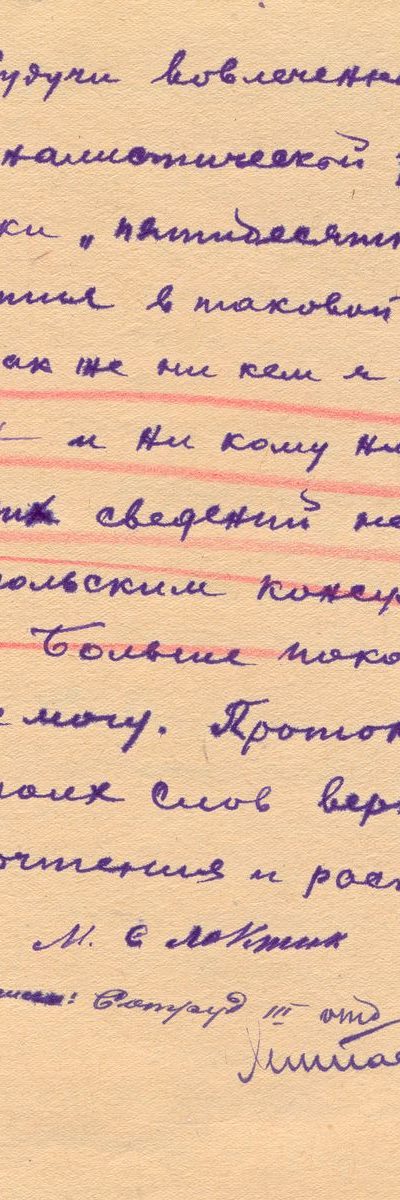 будучи вовлеченн
налистической
ки „пятидесятн
тия в таковой
ак же ни кем я
и ни кому ни
их сведений не
польским консу
Больше пока
е могу. Проток
моих слов вер
очтения и рас
М.
Сотруд III отд